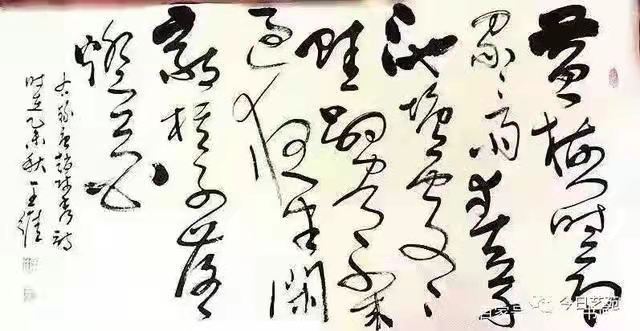 黄梅时节
家家雨青草
池塘处处
蛙有约不来
过夜半闲
敲棋子落
灯花
右录唐赵师秀诗
时在乙未秋王维
今日艺苑